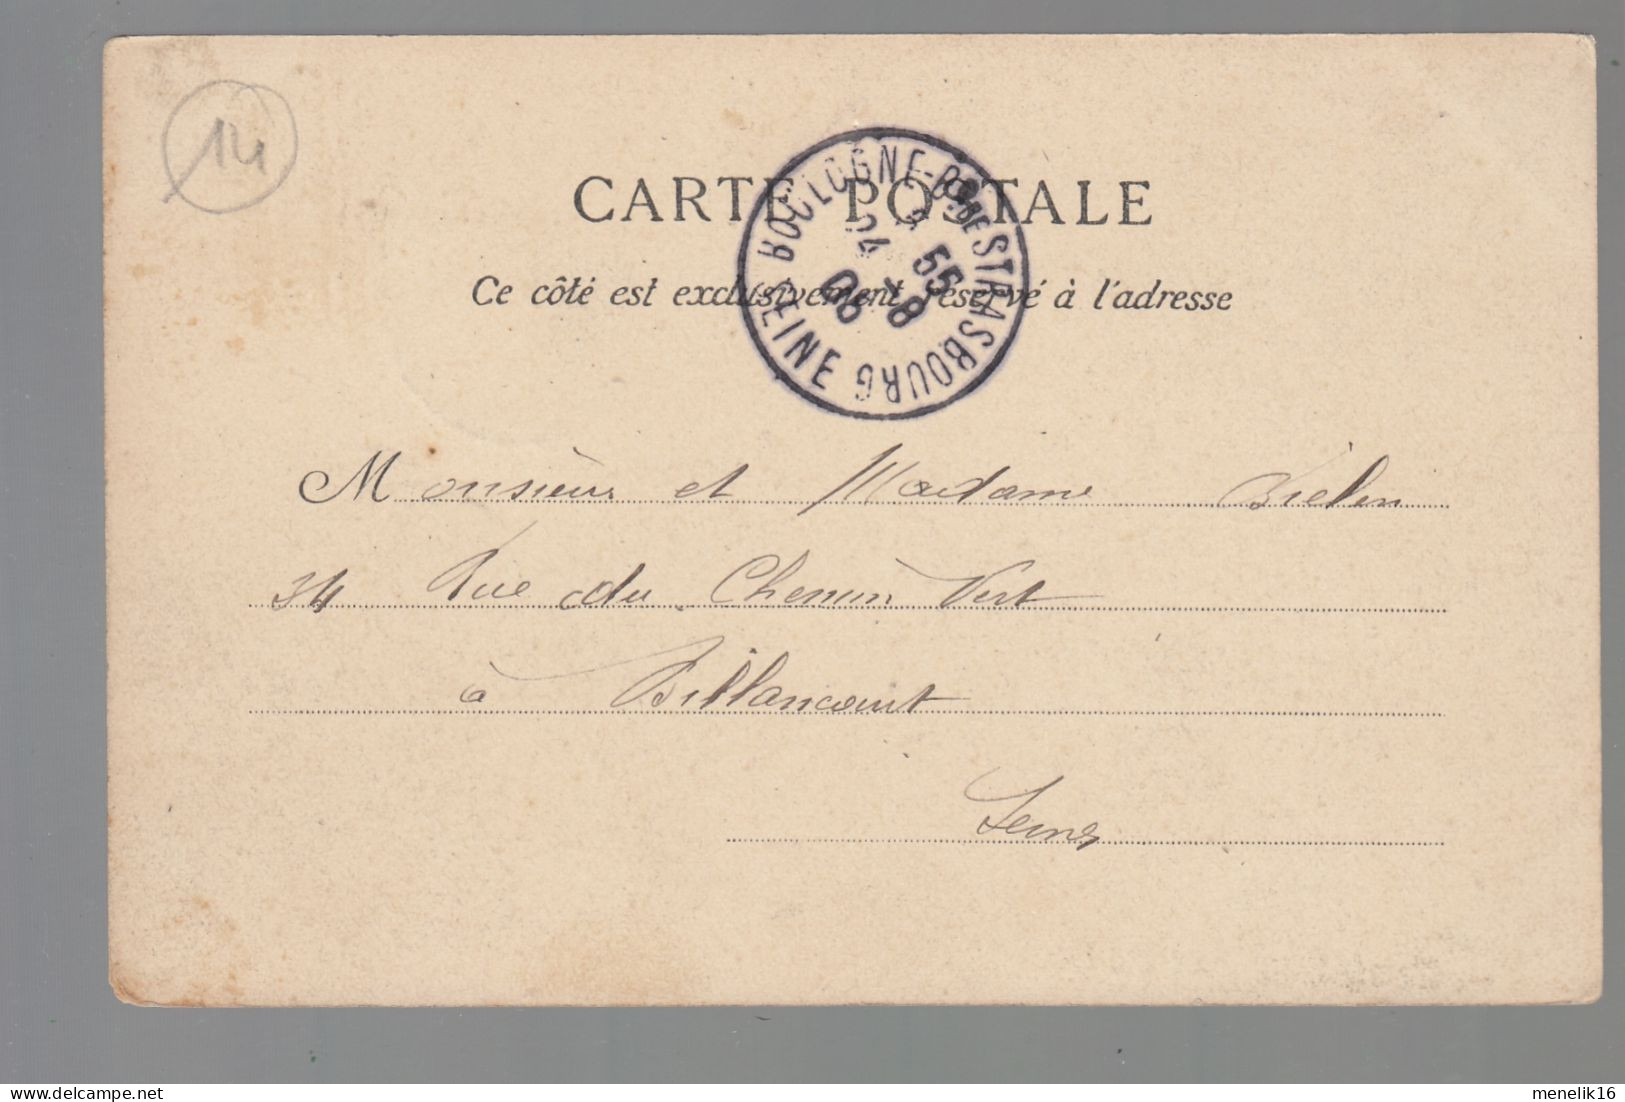 14
CARTE POSTALE
BOULOGNE-S-SEINE Bd DE STRASBOURG
55
24 -8
06
Ce côté est exclusivement réservé à l'adresse
Monsieur et Madame
34 Rue du Chemin Vert
à Billancourt
Seine
delcampe.net
menelik16